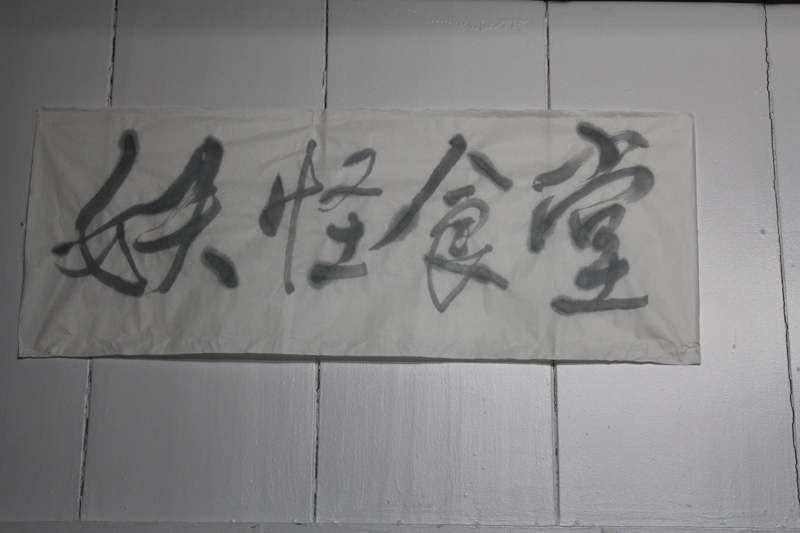 妖怪食堂